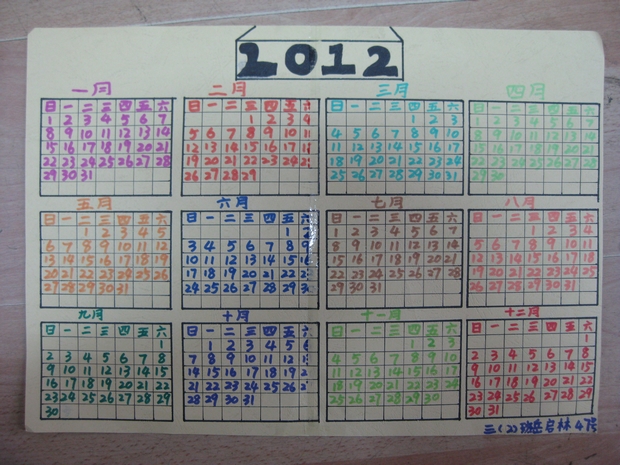 2012
一月
日 一 二 三 四 五 六
1 2 3 4 5 6 7
8 9 10 11 12 13 14
15 16 17 18 19 20 21
22 23 24 25 26 27 28
29 30 31
二月
日 一 二 三 四 五 六
1 2 3 4
5 6 7 8 9 10 11
12 13 14 15 16 17 18
19 20 21 22 23 24 25
26 27 28 29
三月
日 一 二 三 四 五 六
1 2 3
4 5 6 7 8 9 10
11 12 13 14 15 16 17
18 19 20 21 22 23 24
25 26 27 28 29 30 31
四月
日 一 二 三 四 五 六
1 2 3 4 5 6 7
8 9 10 11 12 13 14
15 16 17 18 19 20 21
22 23 24 25 26 27 28
29 30
五月
日 一 二 三 四 五 六
1 2 3 4 5
6 7 8 9 10 11 12
13 14 15 16 17 18 19
20 21 22 23 24 25 26
27 28 29 30 31
六月
日 一 二 三 四 五 六
1 2
3 4 5 6 7 8 9
10 11 12 13 14 15 16
17 18 19 20 21 22 23
24 25 26 27 28 29 30
七月
日 一 二 三 四 五 六
1 2 3 4 5 6 7
8 9 10 11 12 13 14
15 16 17 18 19 20 21
22 23 24 25 26 27 28
29 30 31
八月
日 一 二 三 四 五 六
1 2 3 4
5 6 7 8 9 10 11
12 13 14 15 16 17 18
19 20 21 22 23 24 25
26 27 28 29 30 31
九月
日 一 二 三 四 五 六
1
2 3 4 5 6 7 8
9 10 11 12 13 14 15
16 17 18 19 20 21 22
23 24 25 26 27 28 29
30
十月
日 一 二 三 四 五 六
1 2 3 4 5 6
7 8 9 10 11 12 13
14 15 16 17 18 19 20
21 22 23 24 25 26 27
28 29 30 31
十一月
日 一 二 三 四 五 六
1 2 3
4 5 6 7 8 9 10
11 12 13 14 15 16 17
18 19 20 21 22 23 24
25 26 27 28 29 30
十二月
日 一 二 三 四 五 六
1
2 3 4 5 6 7 8
9 10 11 12 13 14 15
16 17 18 19 20 21 22
23 24 25 26 27 28 29
30 31
三(2)班岳启林 47号